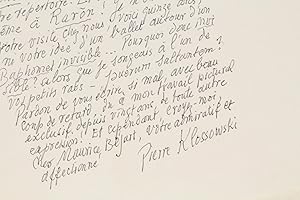 répertoire. E
ème à Karôn! J'avais quinze ans
votre visite chez nous, d'où
ou votre idée d'un ballet autour d'un
Baphomet invisible... Pourquoi donc invi
sible? alors que je songeais à l'un de
vos petits rats -
Pardon de vous écrire si mal, avec beau
coup de retard,
à mon travail pictural
exclusif depuis vingt ans de toute autre
expression! Et cependant croyez-moi,
cher Maurice Béjart, votre admiratif et
affectionné
Pierre Klossowski